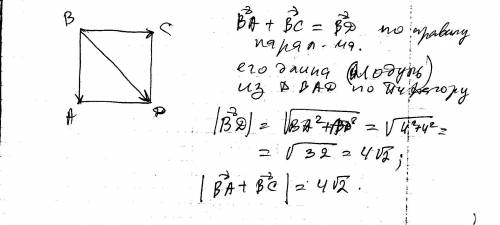 B C
A D
BA + BC = BD по правилу
парал-ма.
его длина (модуль)
из Δ BAD по Пифагору
|BD| = √BA²+AD² = √4²+4² =
= √32 = 4√2 ;
|BA + BC| = 4√2 .
;